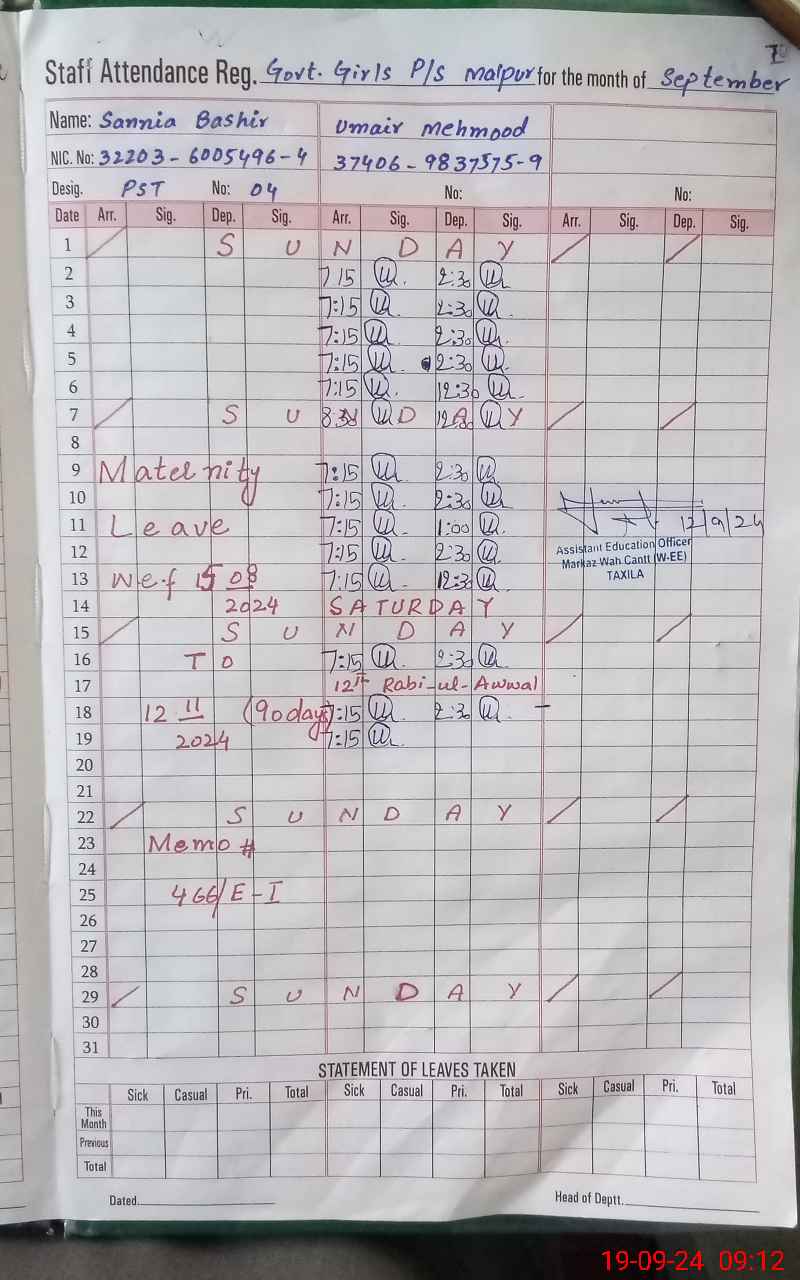 Staff Attendance Reg. Govt. Girls P/S Malpur for the month of September
Name: Sannia Bashir Umair Mehmood
NIC. No: 32203-6005496-4 37406-9837575-9
Desig. PST No: 04 No: No:
Date Arr. Sig. Dep. Sig. Arr. Sig. Dep. Sig. Arr. Sig. Dep. Sig.
1 S U N D A Y
2 7 15 2:30
3 7:15 2:30
4 7:15 2:30
5 7:15 2:30
6 7:15 12:30
7 S U N D A Y
8
9 Maternity 7:15 2:30
10 7:15 2:30
11 Leave 7:15 1:00 12/9/24
12 7:15 2:30 Assistant Education Officer
Markaz Wah Cantt (W-EE)
13 w.e.f 15 08 7:15 12:30 TAXILA
14 2024 SATURDAY
15 S U N D A Y
16 TO 7:15 2:30
17 12th Rabi-ul-Awwal
18 12 11 (90 days 7:15 2:30
19 2024 7:15
20
21
22 S U N D A Y
23 Memo #
24
25 466/E-I
26
27
28
29 S U N D A Y
30
31
STATEMENT OF LEAVES TAKEN
Sick Casual Pri. Total Sick Casual Pri. Total Sick Casual Pri. Total
This Month
Previous
Total
Dated. Head of Deptt.
19-09-24 09:12